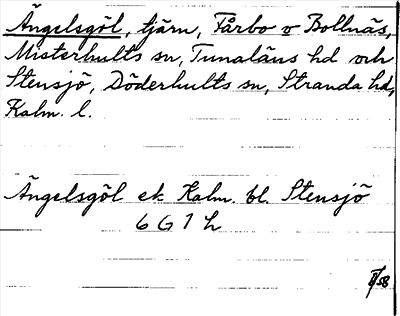 Ängelsgöl, tjärn, Fårbo o Bollnäs,
Misterhults sn, Tunaläns hd och
Stensjö, Döderhults sn, Stranda hd,
Kalm. l.
Ängelsgöl ek. Kalm. bl. Stensjö
6 G 1 h